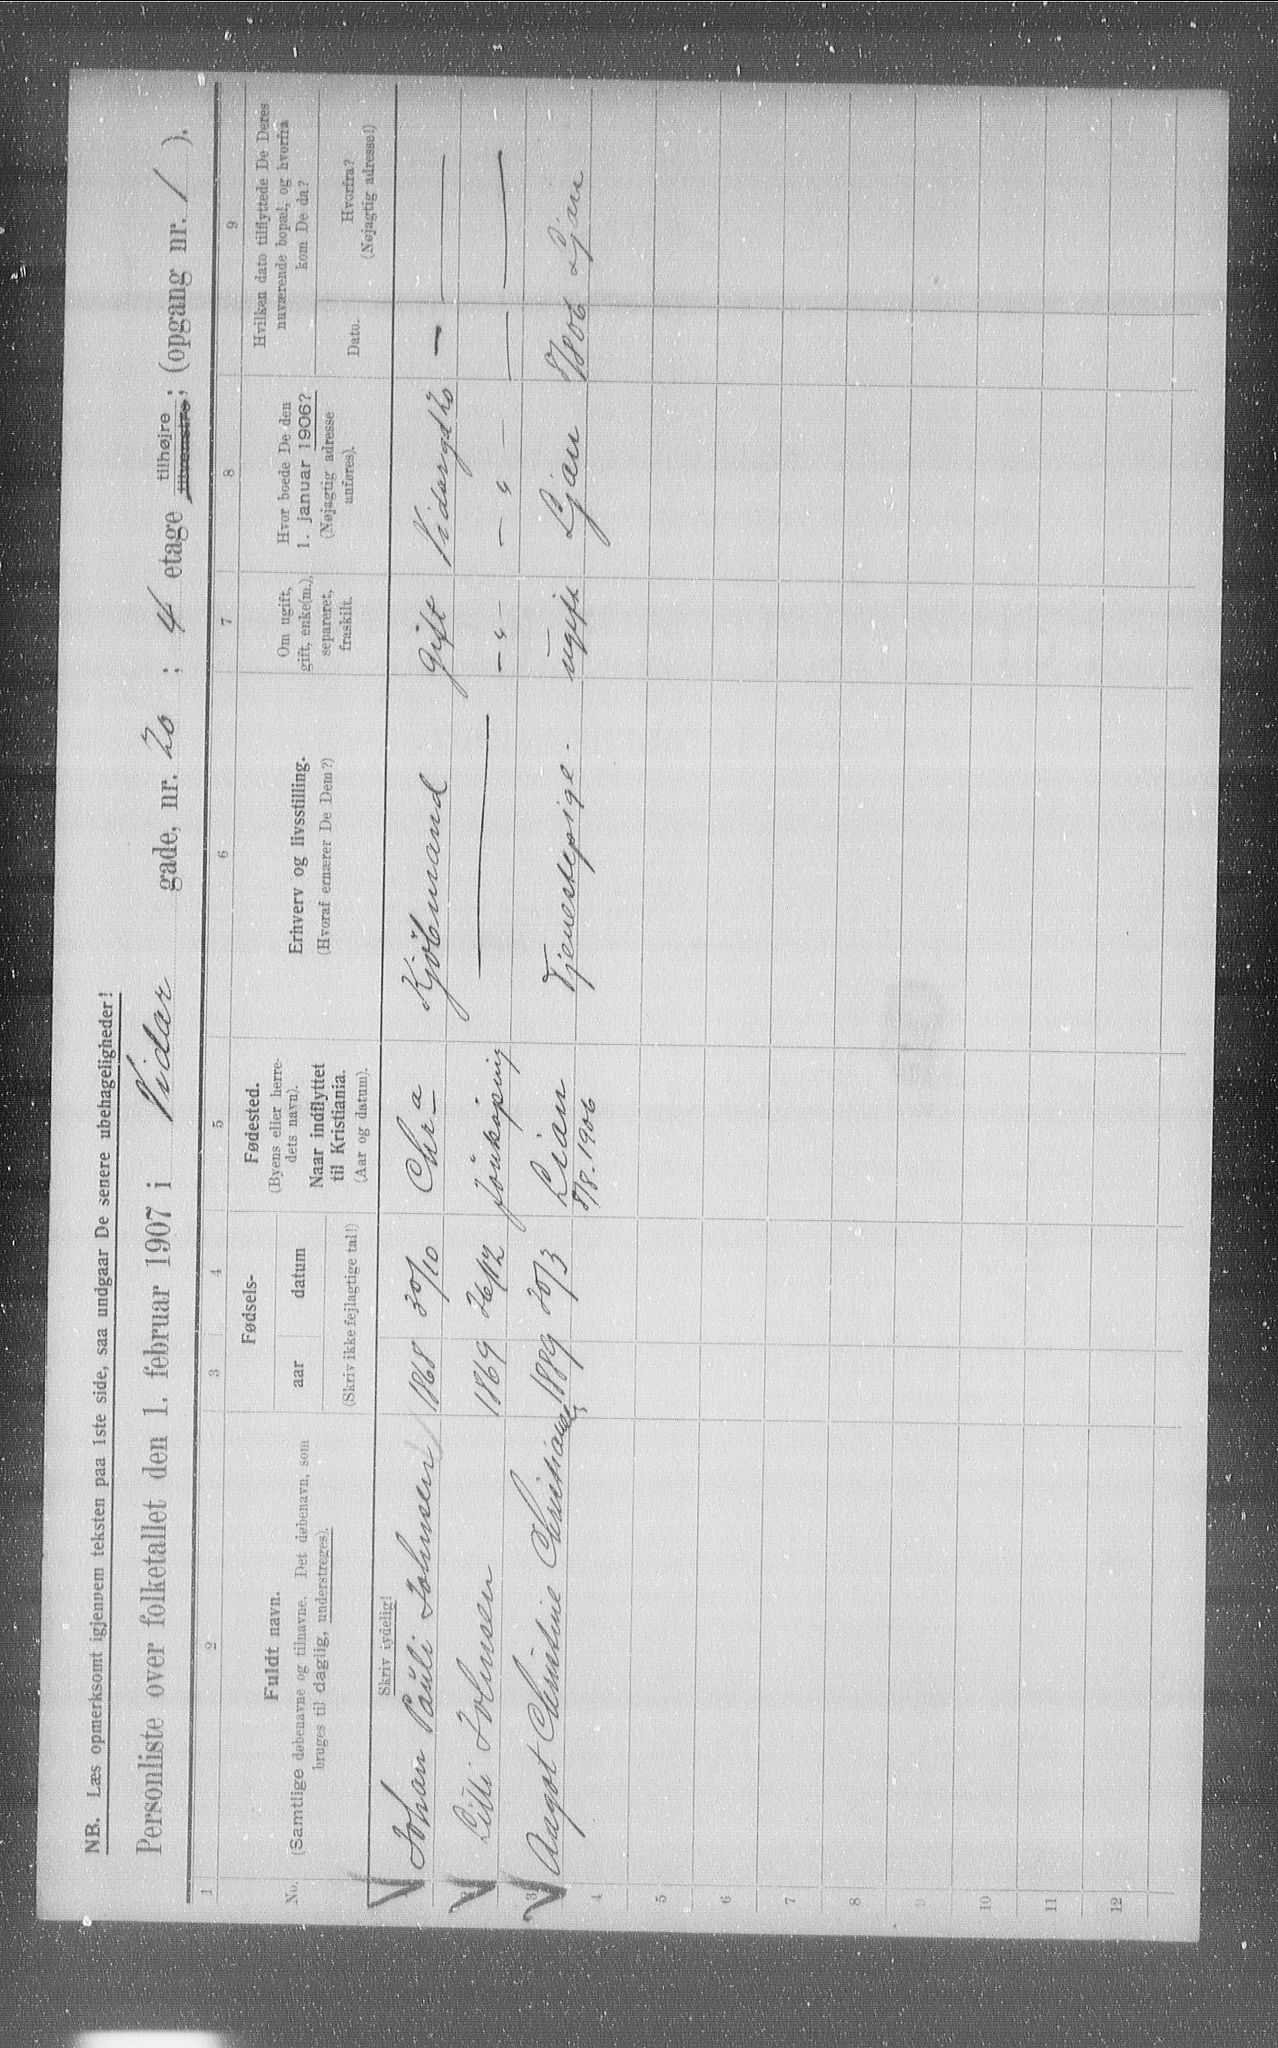 NB. Læs opmerksomt igjennem teksten paa 1ste side, saa undgaar De senere ubehageligheder!
Personliste over folketallet den 1. februar 1907 i Vidar gade, nr. 20 ; 4 etage tilhøjre tilvenstre; (opgang nr. 1 ).
1 2 3 4 5 6 7 8 9
No.
Fuldt navn.
(Samtlige døbenavne og tilnavne. Det døbenavn, som
bruges til daglig, understreges).
Skriv tydelig!
Fødsels-
aar datum
(Skriv ikke fejlagtige tal!)
Fødested.
(Byens eller herre-
dets navn).
Naar indflyttet
til Kristiania.
(Aar og datum).
Erhverv og livsstilling.
(Hvoraf ernærer De Dem?)
Om ugift,
gift, enke(m.),
separeret,
fraskilt.
Hvor boede De den
1. januar 1906?
(Nøjagtig adresse
anføres).
Hvilken dato tilflyttede De Deres
nuværende bopæl, og hvorfra
kom De da?
Dato.
Hvorfra?
(Nøjagtig adresse!)
Johan Pauli Johnsen 1868 30/10 Chr a Kjöbmand gift Vidargd 20 — —
2 Lilli Johnsen 1869 26/12 Jönköping — - " - - " - — —
3 Aagot Christine Christiansen 1889 20/3 Lian Tjenestepige. ugift Ljan 8/8 06 Ljan
8/8. 1906
4
5
6
7
8
9
10
11
12